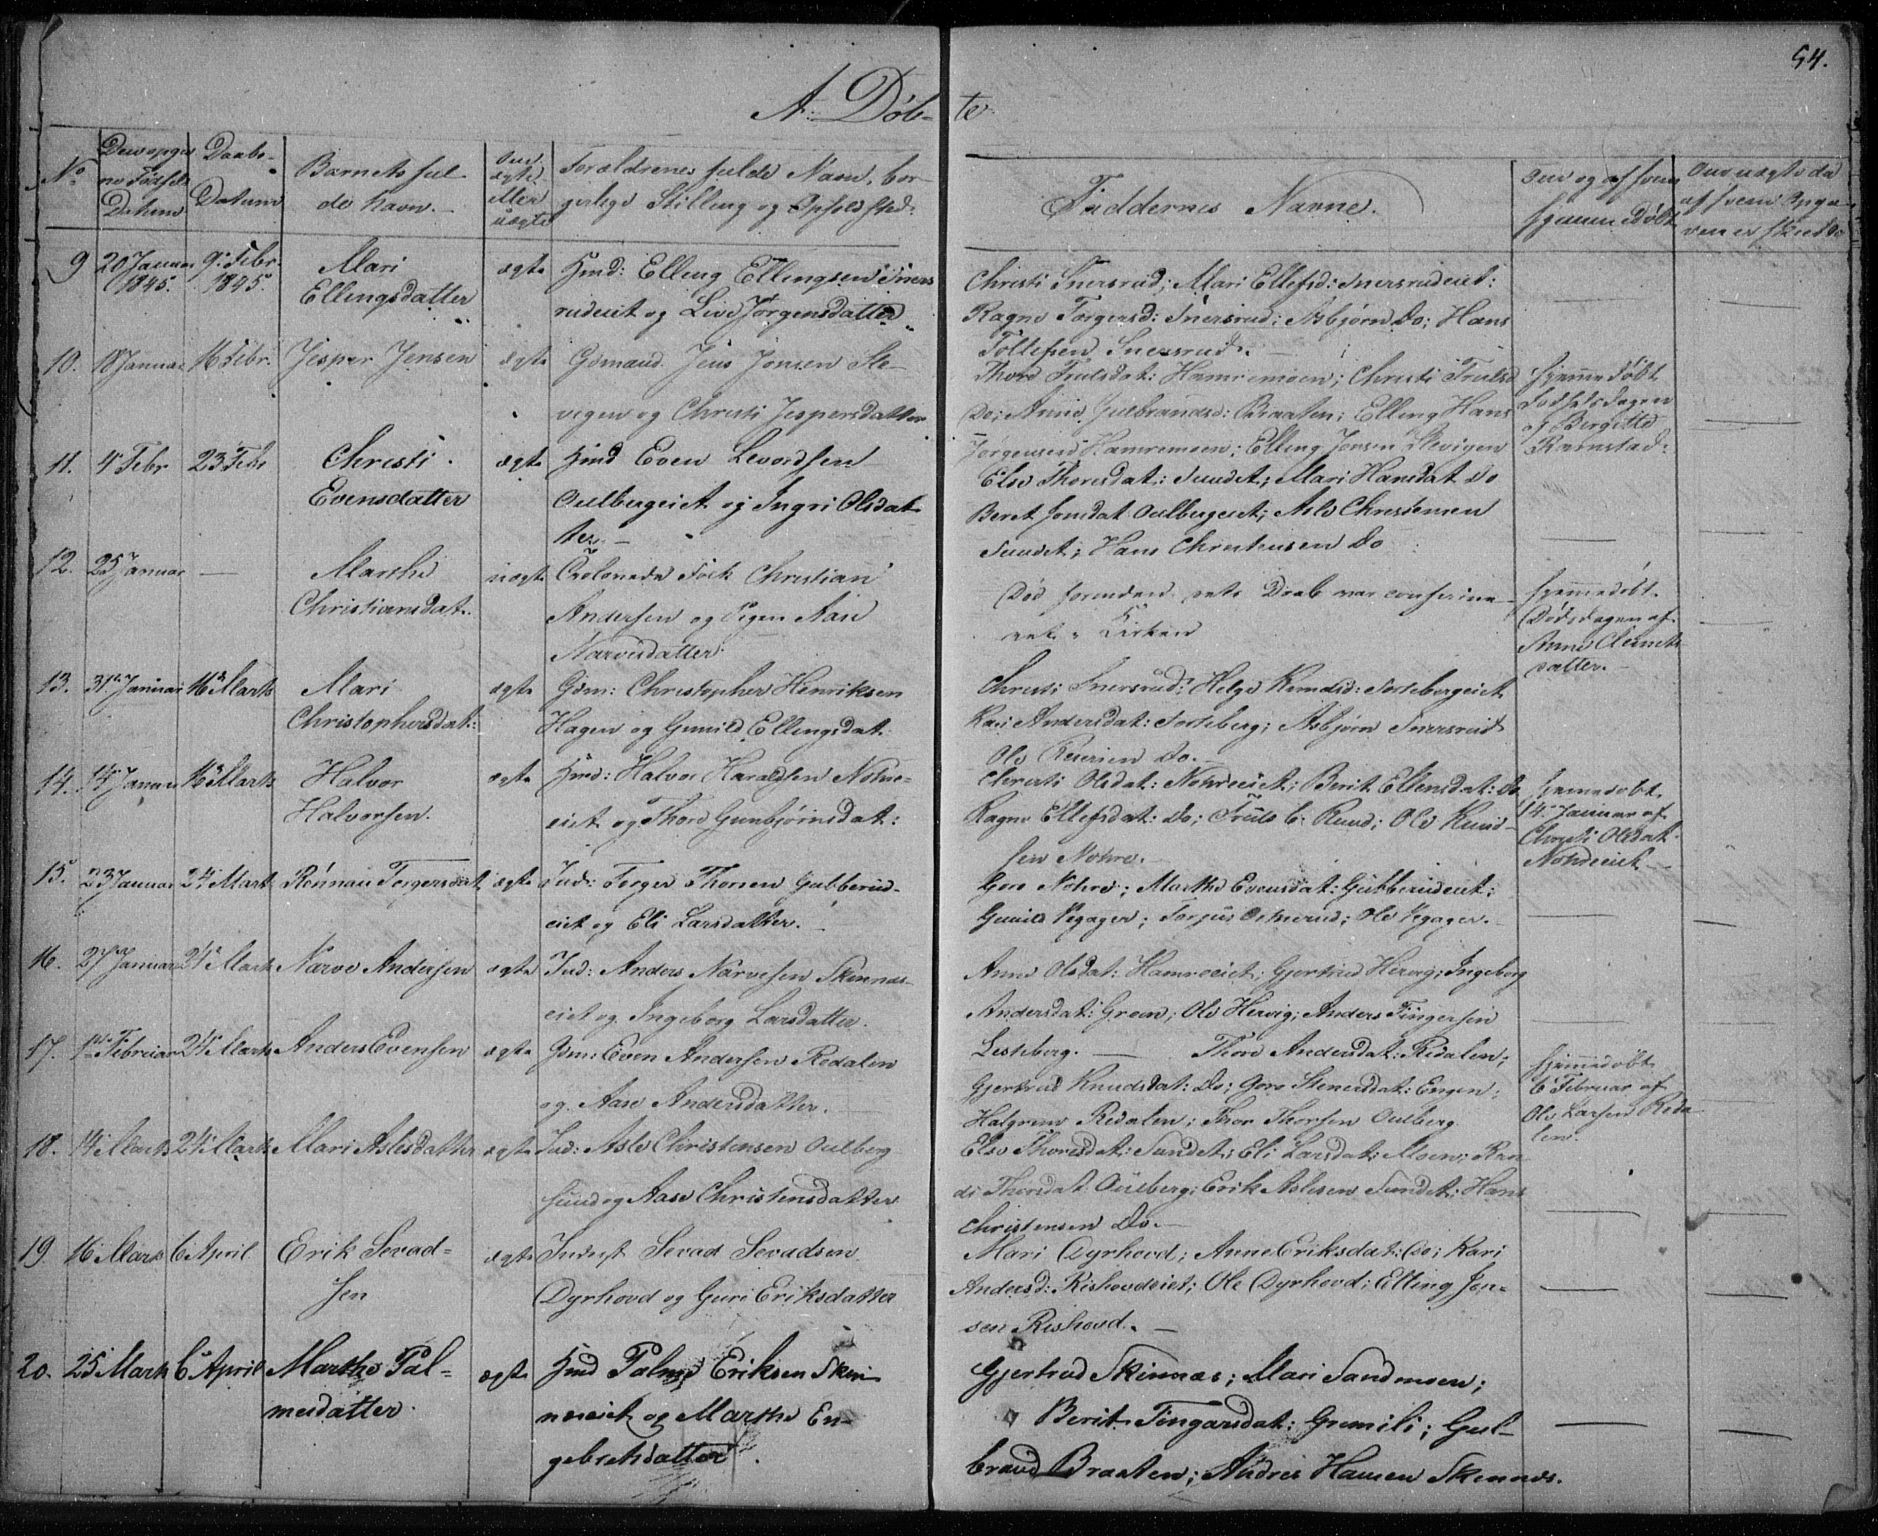 54.
A. Døb- te
No
Den opgiv-
ne Fødsels
Datum
Daabs-
Datum
Barnets ful-
de Navn.
Om
ægte
eller
uægte
Forældrenes fulde Navn, bor-
gerlige Stilling og Opholdsted.
Faddernes Navne.
Om og af hvem
hjemmedøbt
9 20 Januar 1845. 9. Febr. 1845. Mari Ellingsdatter ægte
Hmd: Elling Ellingsen Sners
rudeiet og Live Jørgensdatter
Christi Snersrud; Mari Ellefsd: Snersrudeiet:
Ragne Torgersd: Snersrud; Asbjørn Do; Hans
Tollefsen Snersrud.
10. 18 Januar 16 Febr. Jesper Jensen ægte
Gdmand Jens Jonsen Ste-
vigen og Christi Jespersdatter
Thore Trulsdat: Hamremoen; Christi Trulsd
Do; Anne Gulbrandsd: Braaten; Elling Hans
Jørgensen Hamremoen; Elling Jonsen Stevigen
hjemmedøbt
Fødselsdagen
af Birgitte
Ramstad.
11. 4 Febr 23 Febr Christi Evensdatter ægte
Hmd Even Levordsen
Oulbergeiet og Ingri Olsdat
ter. —
Else Thoresdat: Sundet; Mari Hansdat Do
Beret Jonsdat Oulbergeiet; Asle Christensen
Sundet; Hans Christensen Do
12. 25 Januar — Marthe Christiansdat. uægte
Christian
Andersen og Pigen Aase
Narvesdatter
Død forinden dets Daab var
i Kirken
hjemmedøbt
Dødsdagen af
Anne Clemets
datter. —
13. 31 Januar 16 Marts Mari Christophersdat: ægte
Gdm: Christopher Henriksen
Hagen og Gunild Ellingsdat
Christi Snersrud; Helge Knudsd: Sortebergeiet
Kari Andersdat: Sorteberg; Asbjørn Snersrud
Ole Do. —
14. 14 Januar 16 Marts Halvor Halvorsen. ægte
Hmd: Halvor Haraldsen Nohre-
eiet og Thore Gunbjørnsdat:
Christi Olsdat: Nohreeiet; Berit Ellensdat: Do
Ragne Ellefsdat: Do; Truls E. Ruud; Ole Knud-
sen Nohre. —
hjemmedøbt
14. Januar af
Christi Olsdat
Nohreeiet —
15. 23 Januar 24 Mart Rønnau Torgersdat ægte
Ind: Torger Thoresen Gubberud-
eiet og Eli Larsdatter.
Gore Nohre; Marthe Evensdat: Gubberudeiet;
Gunild Vegager; Torjus Ostnerud; Ole Vegager. —
16. 27 Januar 24 Marts Narve Andersen ægte
Ind: Anders Narvesen Skinnæs-
eiet og Ingeborg Larsdatter.
Anne Olsdat: Hamreeiet; Gjertrud Hervig; Ingeborg
Andersdat: Green; Ole Hervig; Anders Fingersen
Lesteberg. —
17. 1ste Februar 24 Marts Anders Evensen ægte
Gdm: Even Andersen Redalen
og Aase Andersdatter.
Thore Andersdat: Redalen;
Gjertrud Knudsdat: Do; Gore Stenersdat: Engen;
Halgrim Redalen; Thor Thorsen Oulberg
hjemmedøbt
6 Februar af
Ole Larsen Reda-
len.
18. 14 Marts 24 Marts Mari Aslesdatter ægte
Ind: Asle Christensen Oulberg
sund og Aase Christensdatter
Else Thoresdat: Sundet; Eli Larsdat: Moen; Ran
di Thorsdat Oulberg; Erik Aslesen Sundet; Hans
Christensen Do. —
19. 16 Marts 6 April Erik Sevad-
sen ægte
Inderst Sevad Sevadsen
Dyrhovd og Guri Eriksdatter
Mari Dyrhovd; Anne Eriksdat: Do; Kari
Andersd: Rishovdeiet; Ole Dyrhovd; Elling Jen-
sen Rishovd. —
20. 25 Marts 6 April Marthe Pal-
mesdatter. ægte
Hmd Palme Eriksen Skin-
næseiet og Marthe En-
gebretsdatter.
Gjertrud Skinnæs; Mari Sandmoen;
Berit Fingarsdat: Gremili; Gul-
brand Braaten; Andres Hansen Skinnæs.